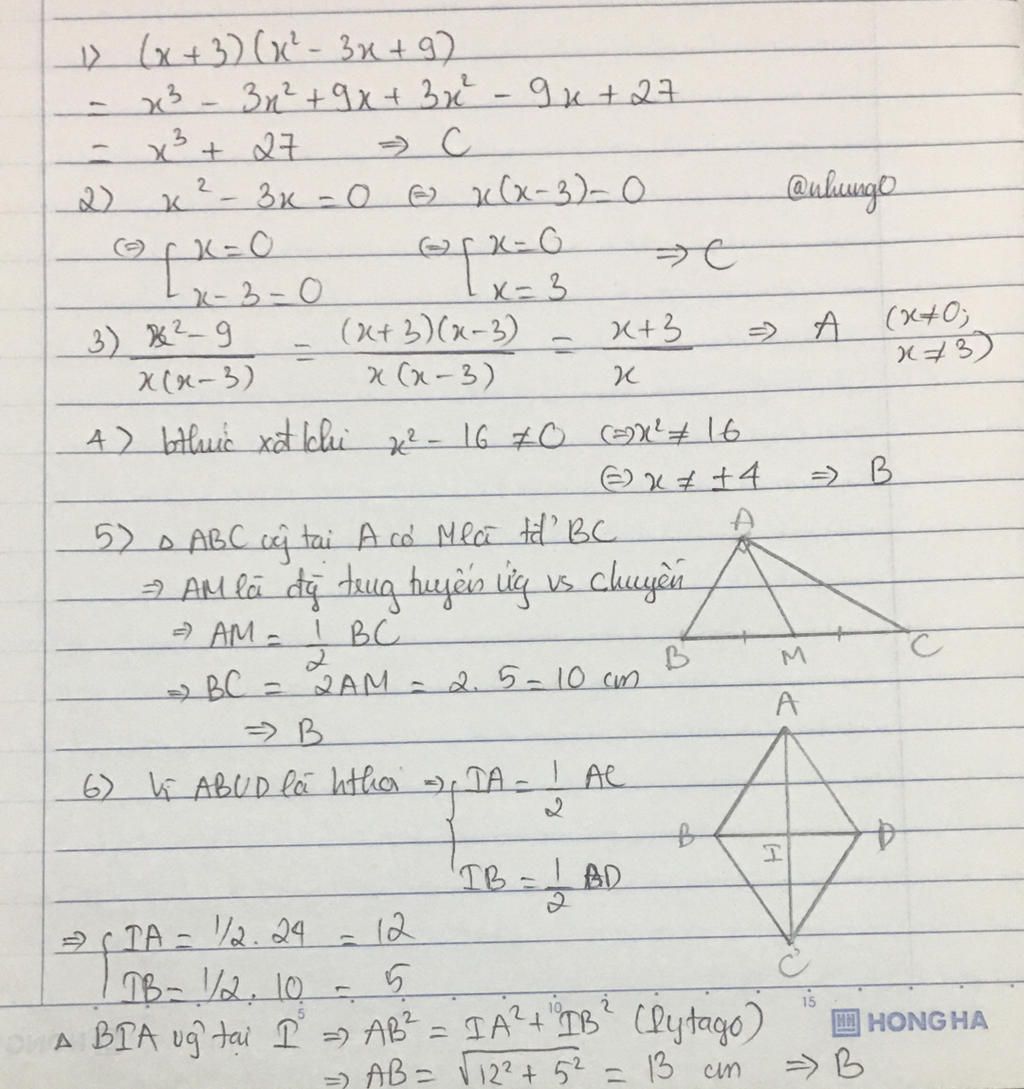 1) (x+3)(x² - 3x + 9)
= x³ - 3x² + 9x + 3x² - 9x + 27
= x³ + 27 ⇒ C
2) x² - 3x = 0 ⇔ x(x-3) = 0 @nhung0
⇔ [ x = 0 ⇔ [ x = 0 ⇒ C
x - 3 = 0 x = 3
3) x² - 9 / x(x-3) = (x+3)(x-3) / x(x-3) = x+3 / x ⇒ A (x≠0; x≠3)
4) bthức xđ khi x² - 16 ≠ 0 ⇔ x² ≠ 16
⇔ x ≠ ±4 ⇒ B
5) Δ ABC vg tại A có M là tđ' BC
⇒ AM là đg trug tuyến ứg vs chuyền
⇒ AM = 1/2 BC
⇒ BC = 2AM = 2. 5 = 10 cm
⇒ B
A
B M C
6) Vì ABCD là hthoi ⇒ { IA = 1/2 AC
IB = 1/2 BD
A
B I D
C
⇒ { IA = 1/2. 24 = 12
IB = 1/2. 10 = 5
5 10 15
Δ BIA vg tại I ⇒ AB² = IA² + IB² (Pytago)
HH HONG HA
⇒ AB = √12² + 5² = 13 cm ⇒ B